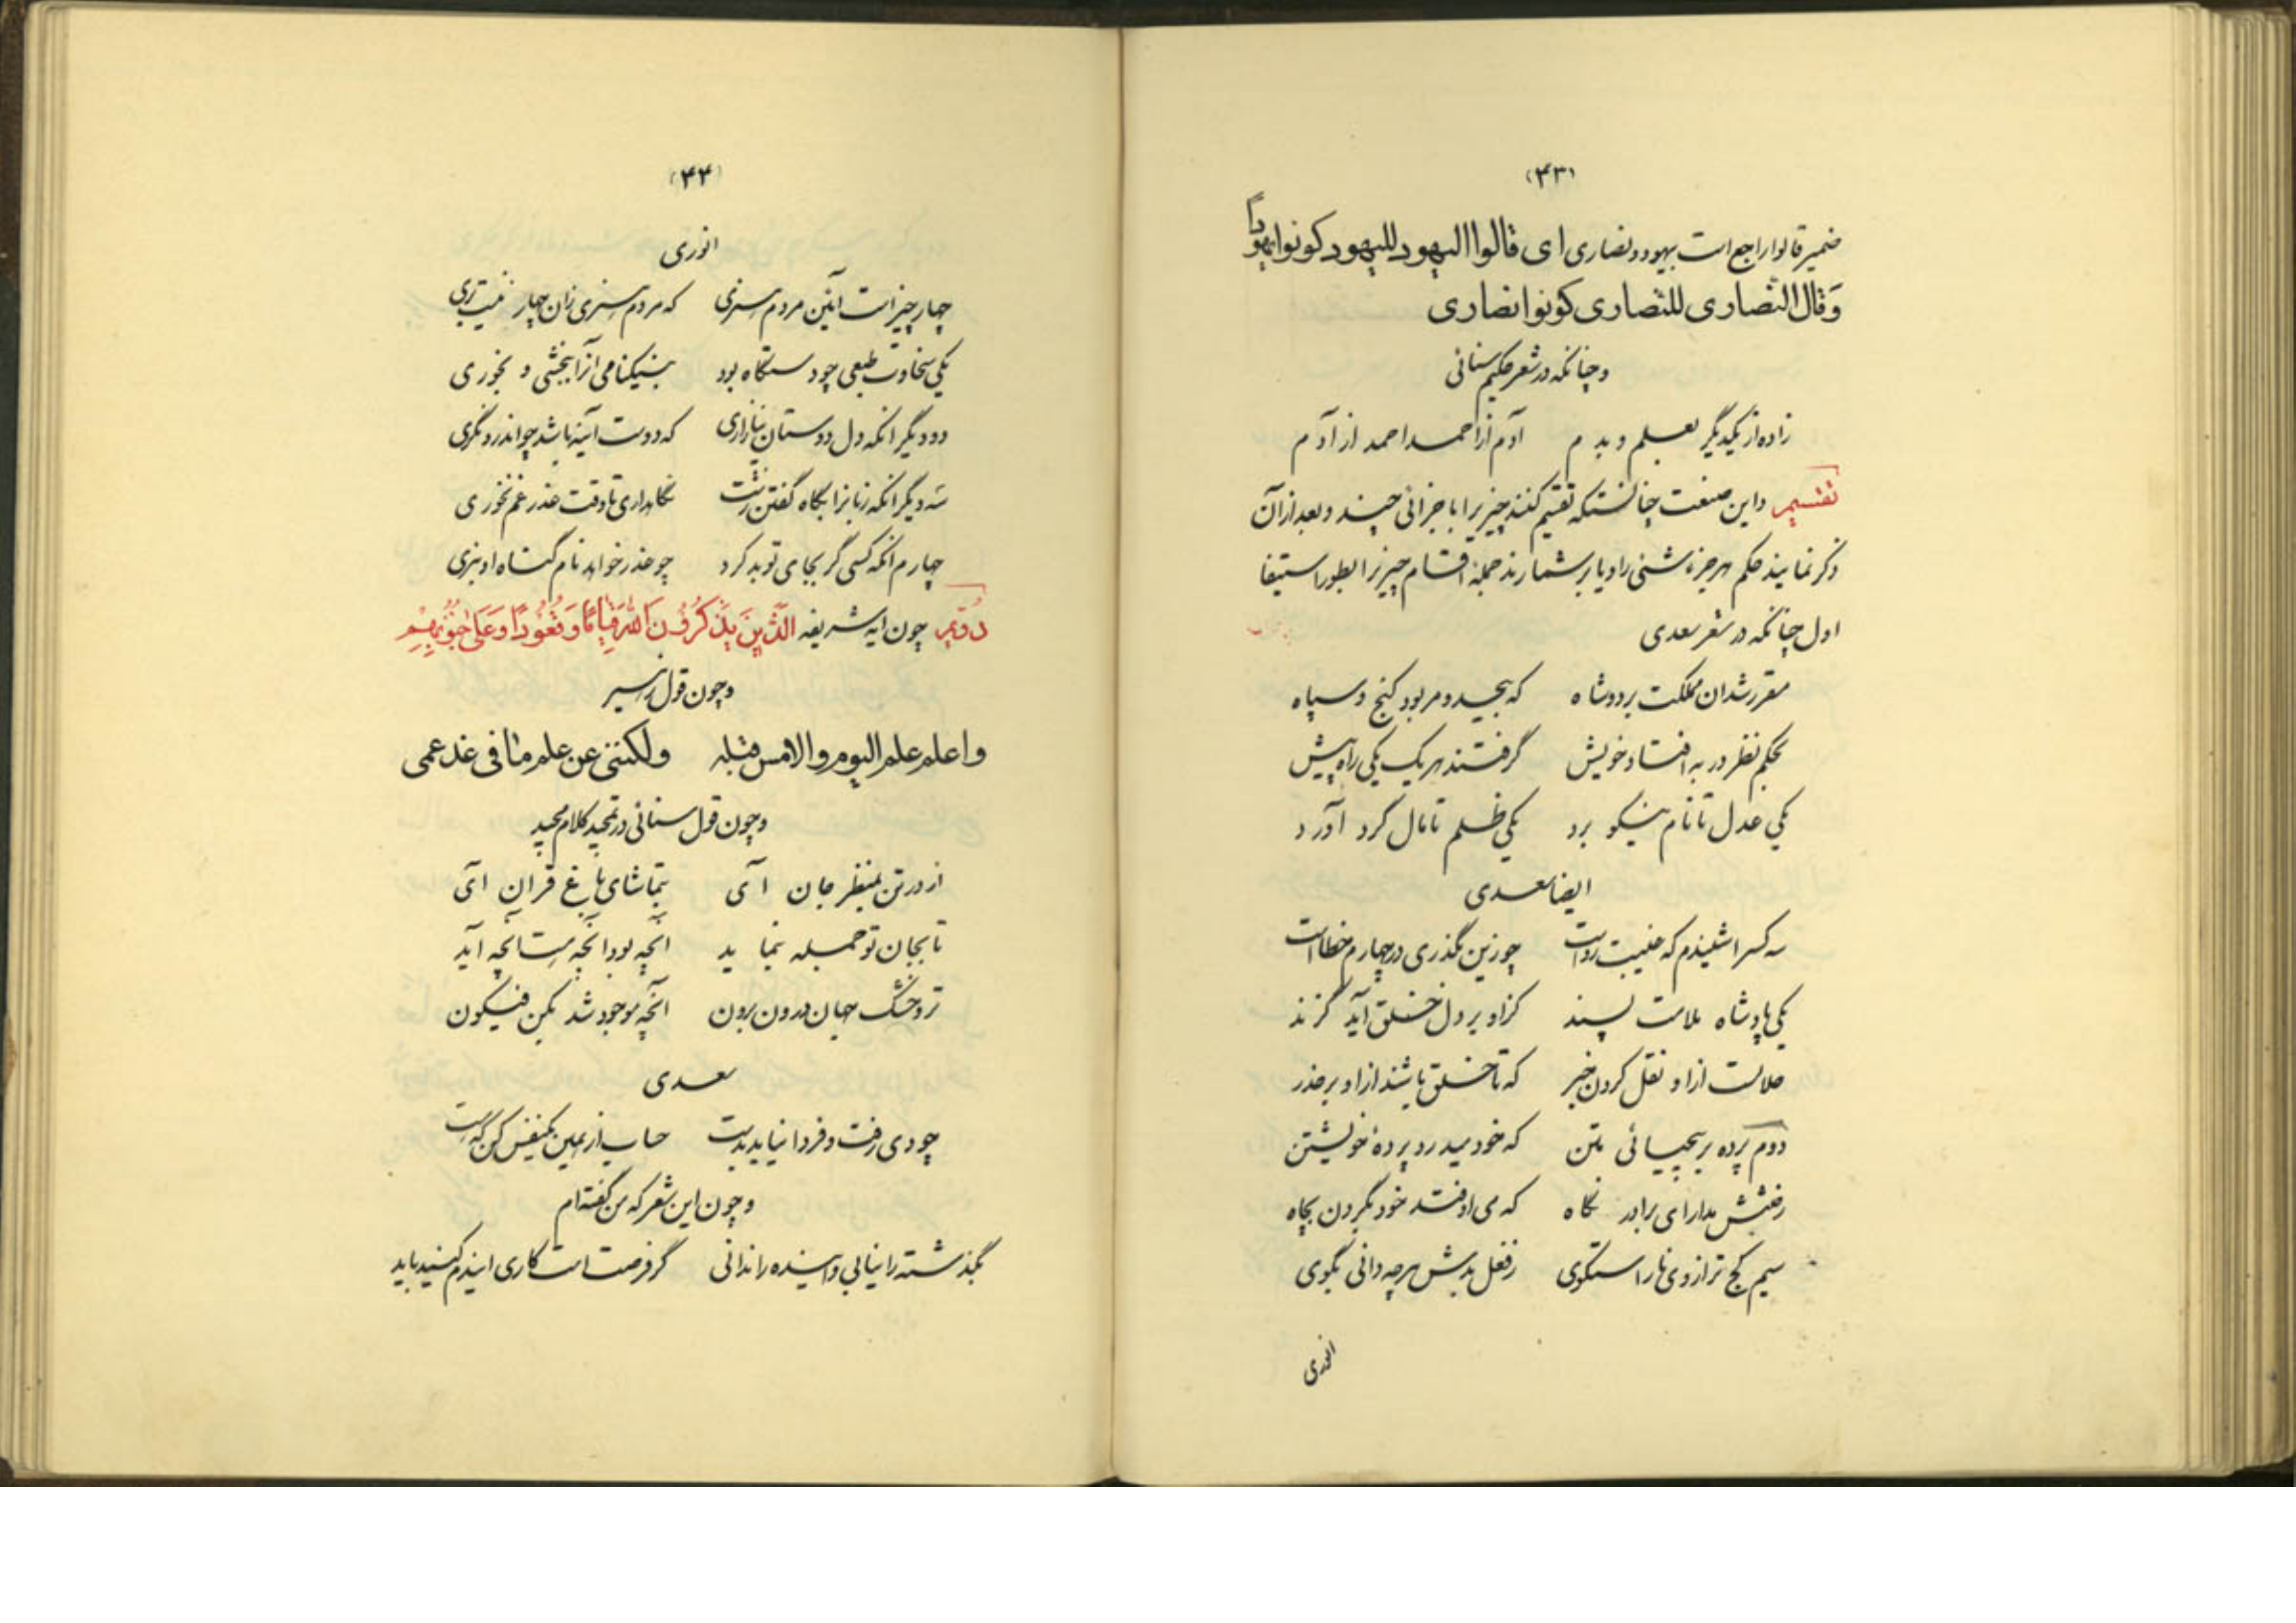 (۴۳)
ضمیر قالوا راجع است بیهود و نصاری ای قالوا الیهود للیهود کونوا یهوداً
وَقال النصاری للنصاری کونوا نصاری
و چنانکه در شعر حکیم سنائی
زاده از یکدیگر بعلم و بدم آدم از احمد احمد از آدم
تقسیم و این صنعت چنانستکه تقسیم کنند چیزیرا باجزائی چند و بعد از آن
ذکر نمایند حکم هر جزء شئی را و یا بر شمارند جمله اقسام چیزیرا بطور استیفا
اول چنانکه در شعر سعدی
مقرر شد آن مملکت بر دو شاه که بیحد و مر بود گنج و سپاه
بحکم نظر در به افتاد خویش گرفتند هر یک یکی راه پیش
یکی عدل تا نام نیکو برد یکی ظلم تا مال گرد آورد
ایضا سعدی
سه کسرا شنیدم که غیبت رواست چو زین بگذری در چهارم خطا است
یکی پادشاه ملامت پسند کزاو بر دل خلق آید گزند
حلالست از او نقل کردن خبر که تا خلق باشند از او بر حذر
دوم پرده بر بیحیائی متن که خود میدرد پردهٔ خویشتن
ز حوضش مدار ای برادر نگاه که می اوفتد خود بگردن بچاه
سیم کج ترازوی ناراستگوی ز فعل بدش هر چه دانی بگوی
انوری
(۴۴)
انوری
چهار چیز است آئین مردم هنری که مردم هنری زان چهار نیست بری
یکی سخاوت طبعی چو دستگاه بود بنیکنامی آنرا ببخشی و بخوری
دو دیگر آنکه دل دوستان نیازاری که دوست آینه باشد چو اندرو نگری
سه دیگر آنکه زبانرا بگاه گفتن زشت نگاهداری تا وقت عذر غم نخوری
چهارم آنکه کسی گر بجای تو بد کرد چو عذر خواهد نام گناه او نبری
دُوّیم چون آیه شریفه الَّذینَ یَذکُرُونَ اللهَ قِیامًا وَقُعُودًا وَعَلی جُنُوبِهِمْ
و چون قول زهیر
و اعلم علم الیوم والامس قبله ولکننی عن علم ما فی غد عمی
و چون قول سنائی در تمجید کلام مجید
از در تن بمنظر جان آی بتماشای باغ قرآن آی
تا بجان تو جمله بنماید آنچه بود آنچه هست آنچه آید
تر و خشک جهان درون برون آنچه موجود شد بکن فیکون
سعدی
چو دی رفت و فردا نیاید بدست حساب از همین یکنفس کن که هست
و چون این شعر که من گفته‌ام
بگذشته را نیابی و آینده را ندانی گر فرصت است کاری ایندم کنید باید